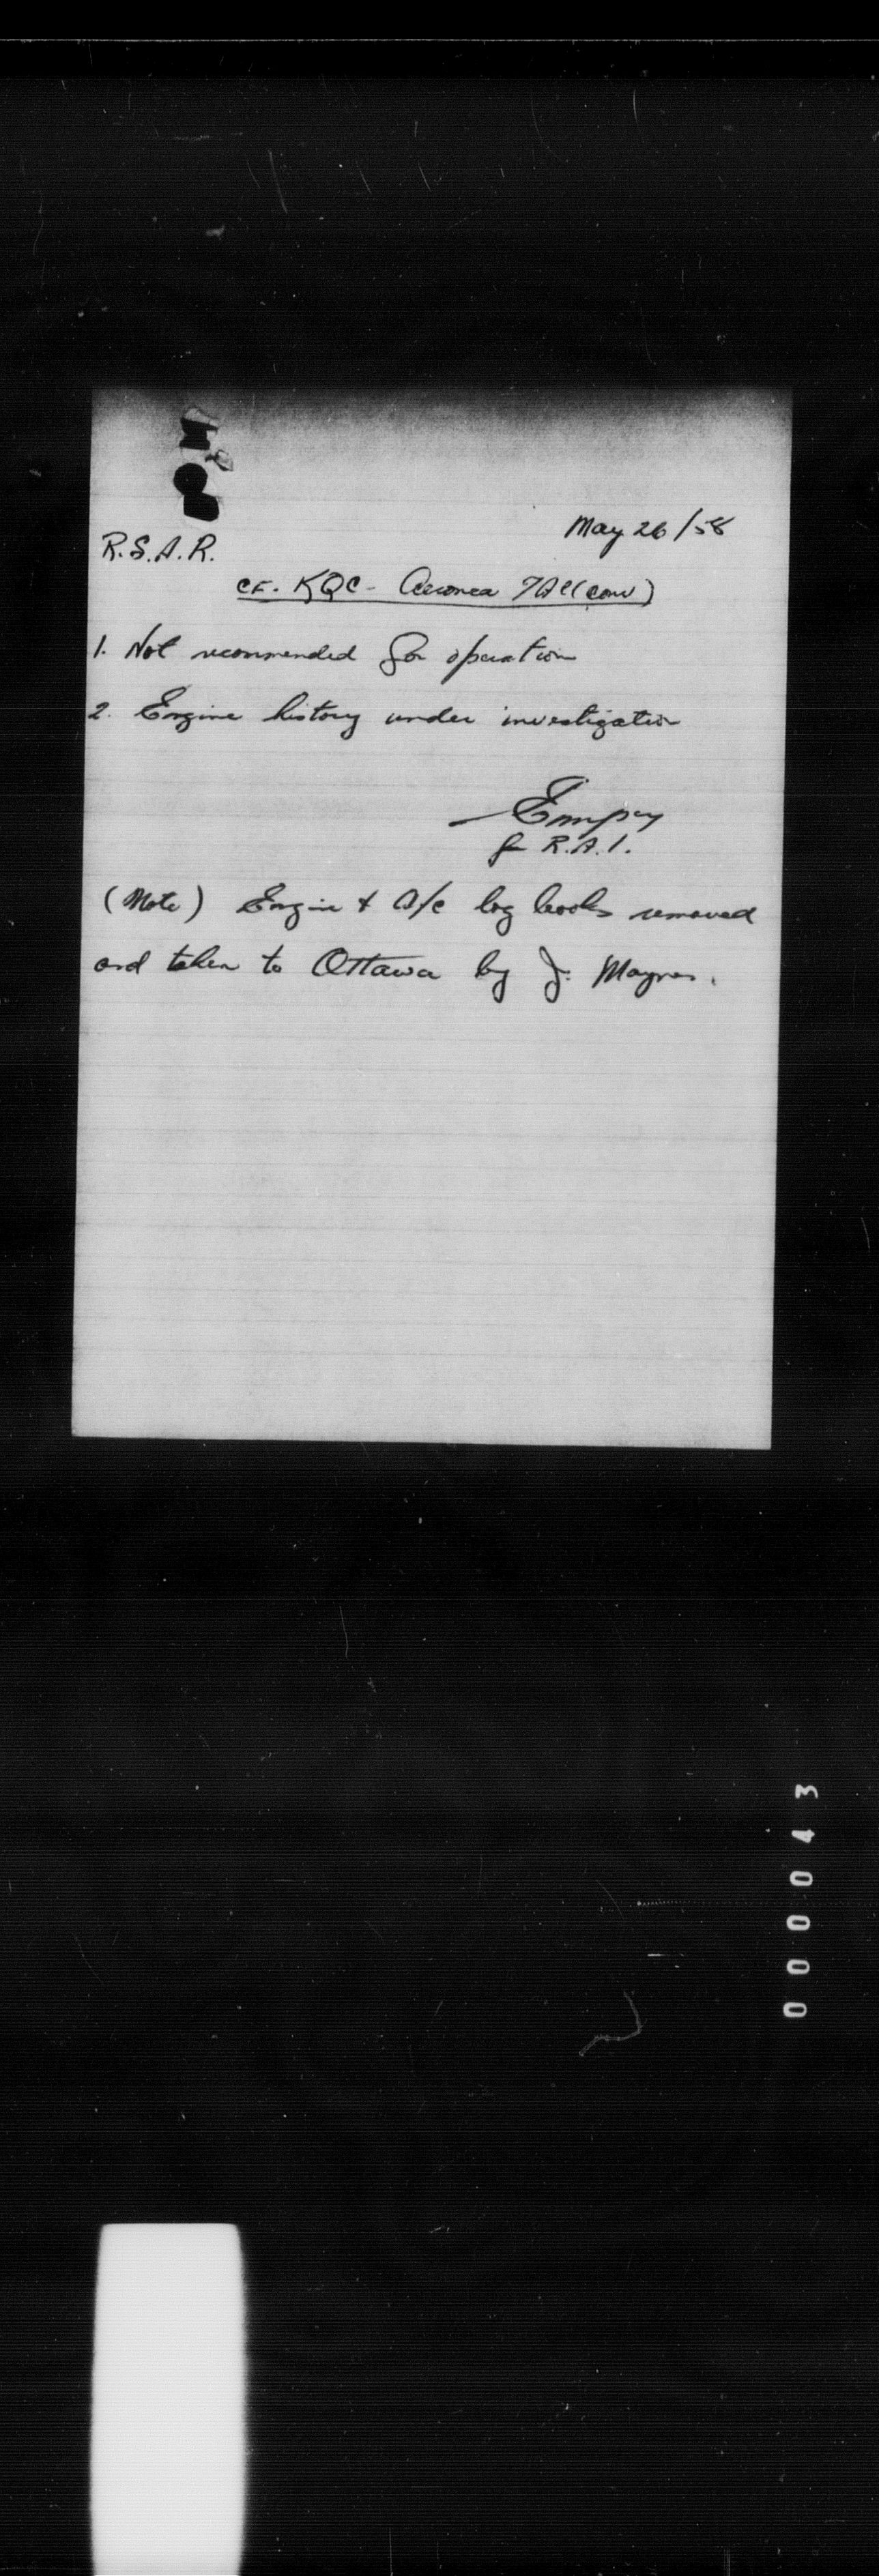 May 26/58
R.S.A.R.
CF. KQC - Aeronca 7AC (conv)
1. Not recommended for operation
2. Engine history under investigation
Empey
for R.A.I.
(Note) Engine & A/c log books removed
and taken to Ottawa by J.
000043